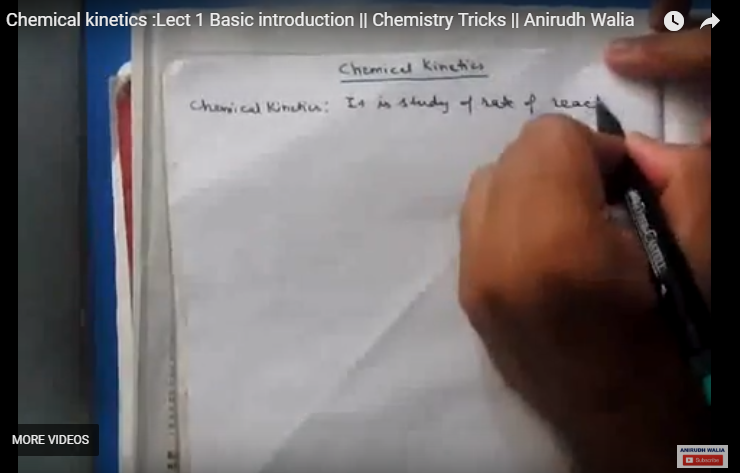 Chemical kinetics :Lect 1 Basic introduction || Chemistry Tricks || Anirudh Walia
Chemical Kinetics
Chemical Kinetics: It is study of rate of reac
MORE VIDEOS
ANIRUDH WALIA
Subscribe